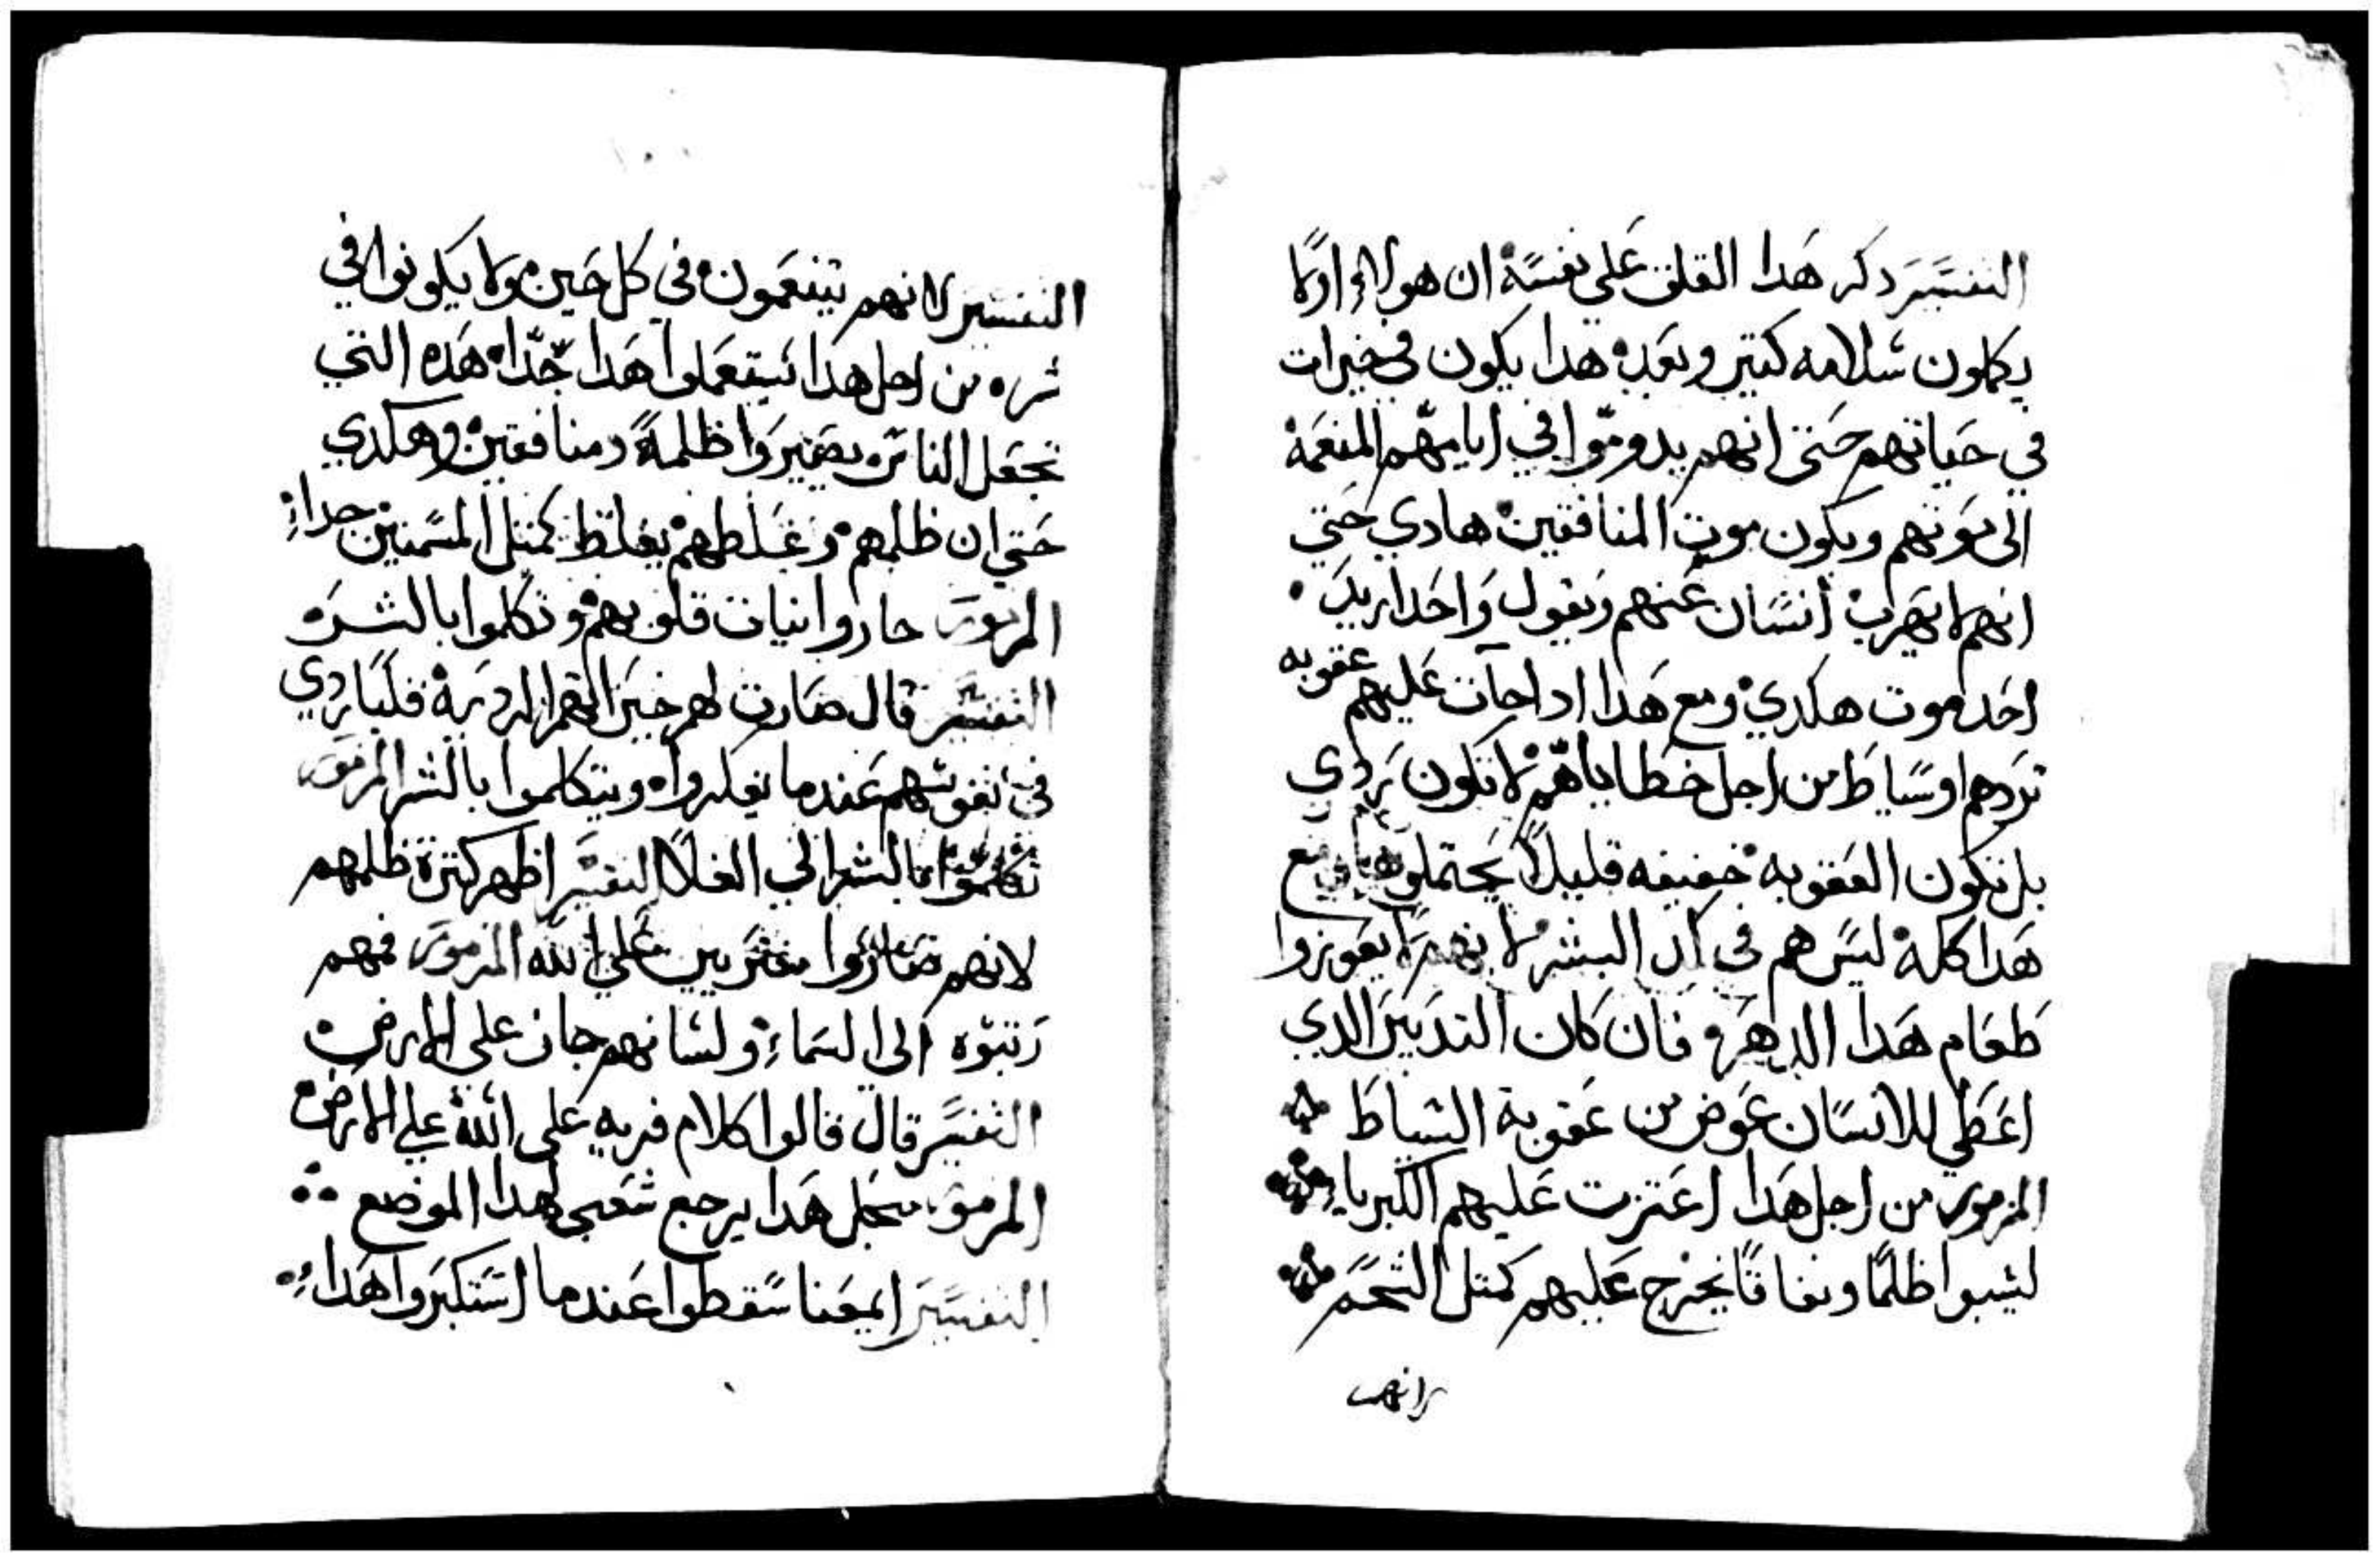 التفسير دكر هدا القلق علي نفسه ان هولاء اولا
يكملون سلامه كتير وبعد هدا يكون في خيرات
في حياتهم حتى انهم يدوموا في ايامهم المنعمة
الى موتهم ويكون موت المنافقين هادي حتي
انهم لا يهرب انسان عنهم ويقول واحدا يريد
احد موت هكدي ومع هدا ادا جات عليهم عقوبه
تردهم اوسياط من اجل خطاياهم لا تكون تردي
بل تكون العقوبه خفيفه قليلا يحتملوها مع
هدا كله ليس هم في البشر لانهم لا يعوزوا
طعام هدا الدهر فان كان التدبير الدي
اعطي للانسان عوض من عقوبة السياط
المزمور من اجل هدا اعتزت عليهم الكبرياء
لبسوا ظلما ونفاقا يخرج عليهم كمتل الشحم
لانهم
التفسير لانهم يتنعمون في كل حين ولا يكونوا في
شره من اجل هدا يستعملوا هدا جدا هده التي
تجعل الناس يصيروا ظلمة ومنافقين وهكدي
حتي ان ظلمهم وغلطهم يغلظ كمتل المسمنين جداء
المزمور حازوا نيات قلوبهم وتكلموا بالشره
التفسير قال صارت لهم خير الهم الرديه قلبا ردي
في نفوسهم عندما يفكروا ويتكلموا بالشر المزمور
تكلموا بالشر الي العلا التفسير اظهر كترة ظلمهم
لانهم صاروا مفتريين علي الله المزمور فمهم
رتبوه الى السماء ولسانهم جاز على الارض
التفسير قال قالوا كلام فريه على الله علي الارض
المزمور مجل هدا يرجع شعبي لهدا الموضع
التفسير ايمعنا سقطوا عندما استكبروا هداء